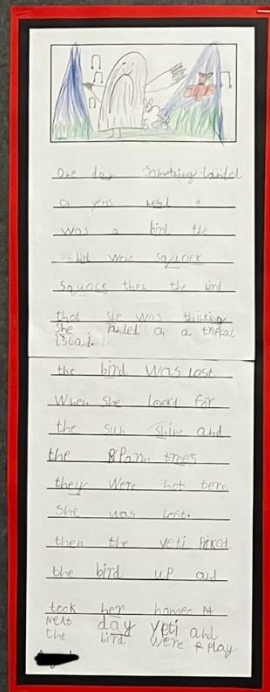 One day Something landed
a yetis
was a bird the
bird went squack
Squack then the bird
that she was thinking
She landed on a
the bird was lost
When she for
the sun shine and
the trees
they were not
She was lost.
then the yeti Picked
the bird uP and
took her home
Next day yeti and
the bird were play